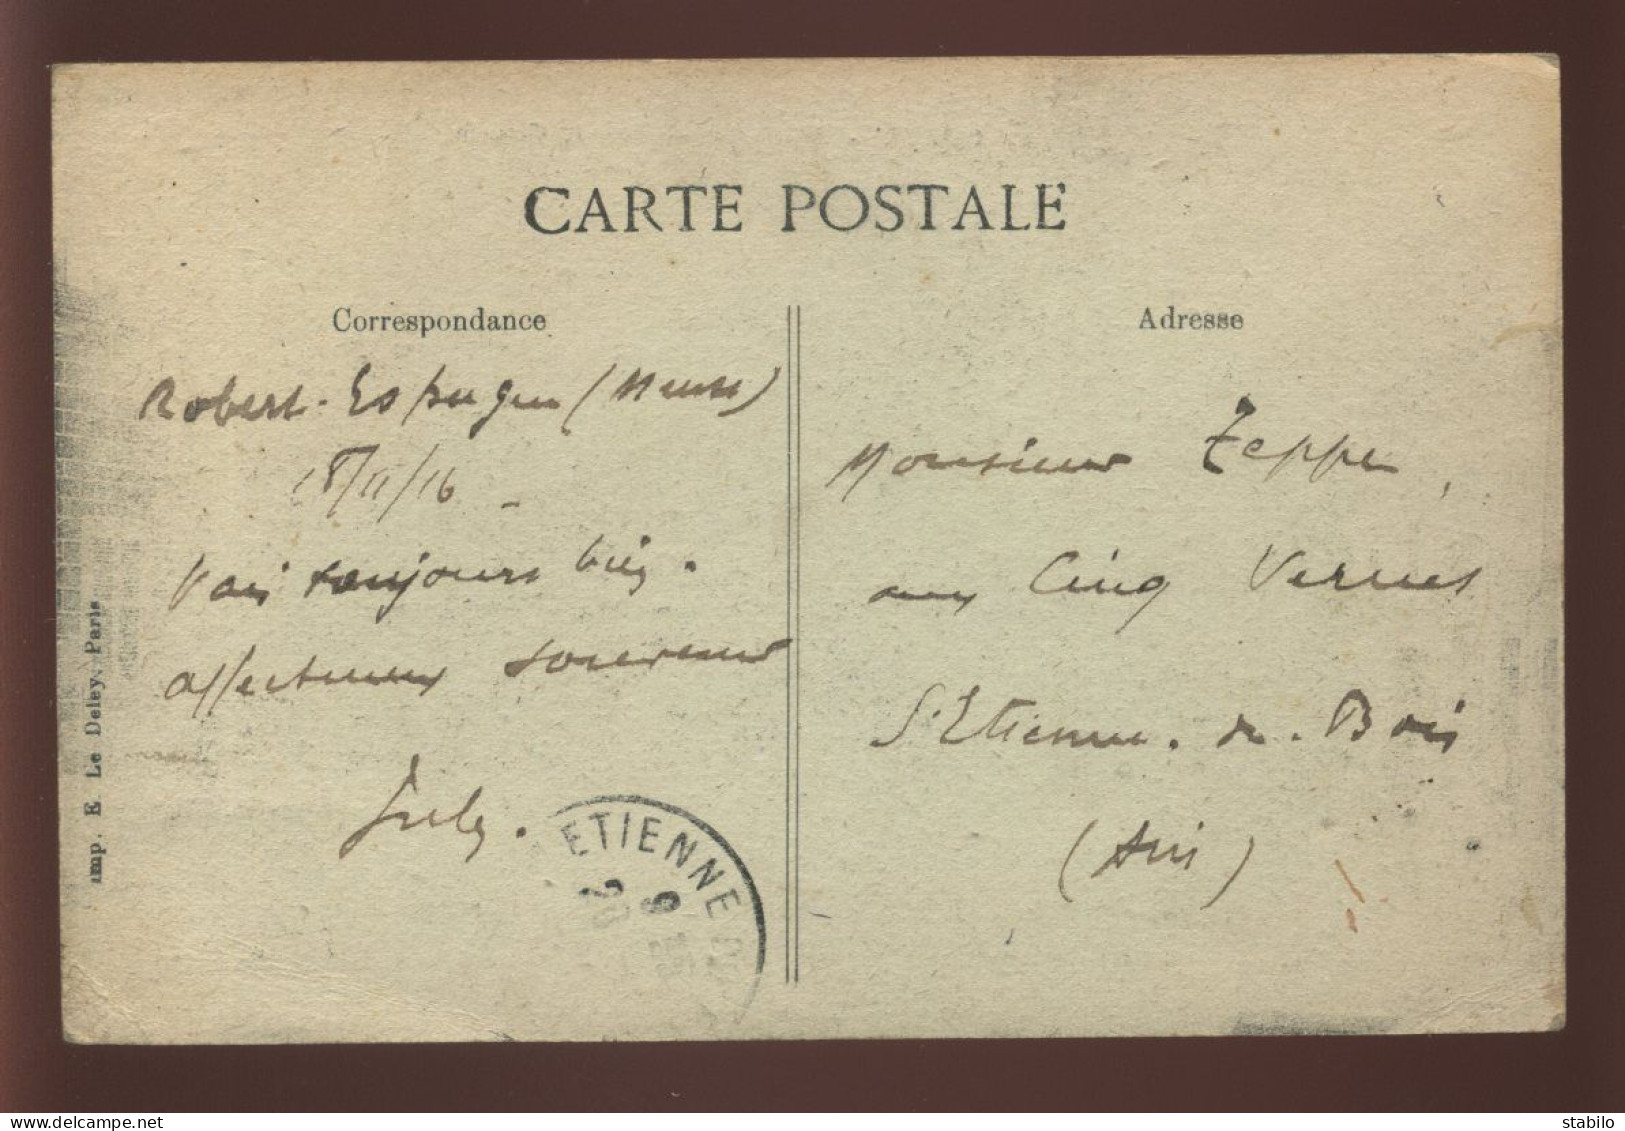 CARTE POSTALE
Correspondance
Robert-Espagne (Meuse)
18/11/16
Vais toujours bien.
affectueux souvenir
Adresse
Monsieur Teppe,
aux Cinq Vernes
St Etienne-du-Bois
(Ain)
ETIENNE
Imp. E. Le Deley, Paris
delcampe.net
stabilo